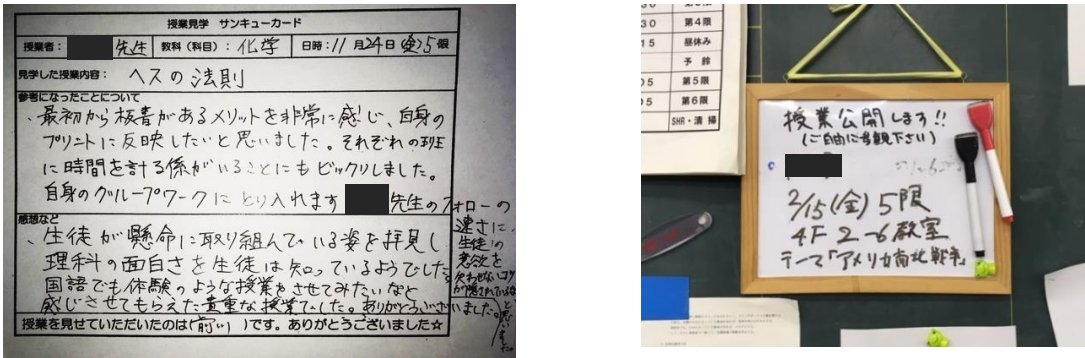 授業見学 サンキューカード
授業者: 先生 教科(科目): 化学 日時: 11月24日(金)5限
見学した授業内容: ヘスの法則
参考になったことについて
、最初から板書があるメリットを非常に感じ、自身の
プリントに反映したいと思いました。それぞれの班
に時間を計る係がいることにもビックリしました。
自身のグループワークにとり入れます 先生のフォローの
速さに、
生徒の
意欲を
失わせないコツ
が隠されている
と思いました。
感想など
、生徒が懸命に取り組んでいる姿を拝見し
理科の面白さを生徒は知っているようでした。
国語でも体験のような授業をさせてみたいなと
感じさせてもらえた貴重な授業でした。ありがとうございました。
授業を見せていただいたのは( )です。ありがとうございました☆
30
30 第4限
15 昼休み
予鈴
05 第5限
05 第6限
SHR・清掃
授業公開します!!
(ご自由に参観下さい)
2/15(金)5限
4F 2-6教室
テーマ「アメリカ南北戦争」